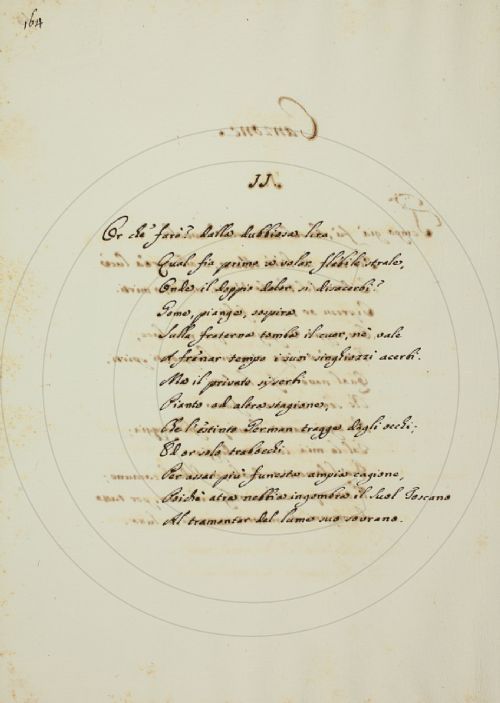 164
II.
Or che farò? dalla dubbiosa lira
Qual fia primo a volar flebile strale,
Onde il doppio dolor si disacerbi?
Geme, piange, sospira
Sulla fraterna tomba il cuor, nè vale
A frenar tempo i suoi singhiozzi acerbi.
Ma il privato si serbi
Pianto ad altra stagione,
Che l'estinto German tragge dagli occhi;
Ed or solo trabocchi
Per assai più funesta ampia cagione,
Poichè atra nebbia ingombra il Suol Toscano
Al tramontar del lume suo sovrano.